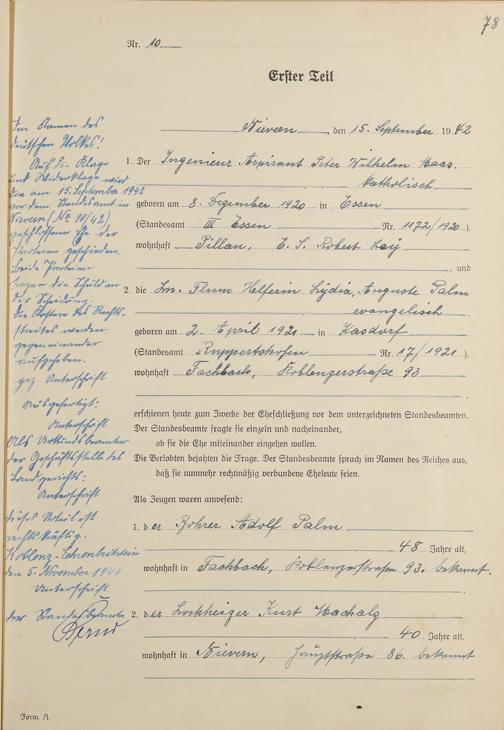 78
Nr. 10
Erster Teil
Nievern, den 15. September 1942
1. Der Ingenieur-Aspirant Peter Wilhelm Maas.
katholisch
geboren am 8. Dezember 1920 in Essen
(Standesamt III Essen Nr. 1172/1920).
wohnhaft Pillau, Robert Ley
und
2. die Helferin Lydia, Auguste Palm
evangelisch
geboren am 2. April 1921 in Kasdorf
(Standesamt Ruppertshofen Nr. 17/1921).
wohnhaft Fachbach, Koblenzerstraße 93
erschienen heute zum Zwecke der Eheschließung vor dem unterzeichneten Standesbeamten.
Der Standesbeamte fragte sie einzeln und nacheinander,
ob sie die Ehe miteinander eingehen wollen.
Die Verlobten bejahten die Frage. Der Standesbeamte sprach im Namen des Reiches aus,
daß sie nunmehr rechtmäßig verbundene Eheleute seien.
Als Zeugen waren anwesend:
1. der Bohrer Adolf Palm
48 Jahre alt,
wohnhaft in Fachbach, Koblenzerstraße 93. bekannt.
2. der Kurt
40 Jahre alt,
wohnhaft in Nievern, Hauptstraße 86. bekannt
Im Namen des
deutschen Volkes!
Auf die Klage
und Widerklage wird
die am 15. September 1942
vor dem Standesamt in
Nievern (No 10/42)
geschlossene Ehe der
Parteien geschieden.
Beide Parteien
tragen die Schuld an
der Scheidung.
Die Kosten des Rechts-
streites werden
gegeneinander
aufgehoben.
gez. Unterschrift
Ausgefertigt:
Unterschrift
als Urkundsbeamter
der Geschäftsstelle des
Landgerichts.
Unterschrift
Dieses Urteil ist
rechtskräftig.
Koblenz-Ehrenbreitstein
den 5. November 1946
Unterschrift
der Standesbeamte
Form. A